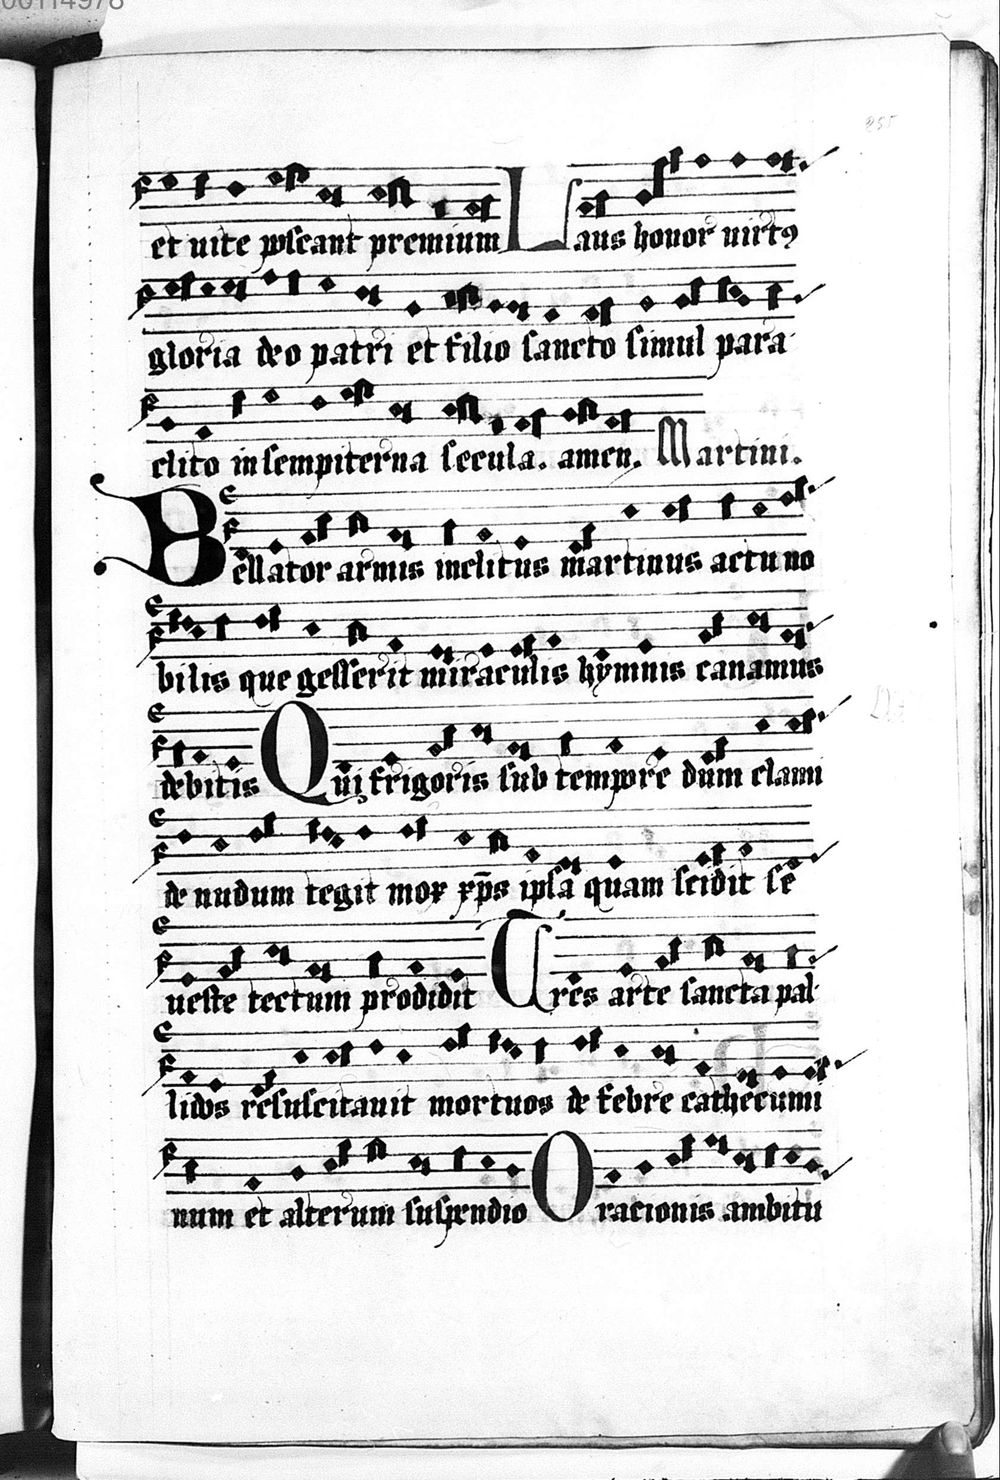 00114978
255
et uite poscant premium Laus honor uirtꝰ
gloria deo patri et filio sancto simul para
clito in sempiterna secula. amen. Martini.
Bellator armis inclitus martinus actu no
bilis que gesserit miraculis hymnis canamus
debitis Qui frigoris sub tempore dum clami
de nudum tegit mox xp̄s ipsa quam scidit se
ueste tectum prodidit Tres arte sancta pal
lidos resuscitauit mortuos de febre cathecumi
num et alterum suspendio Oracionis ambitu